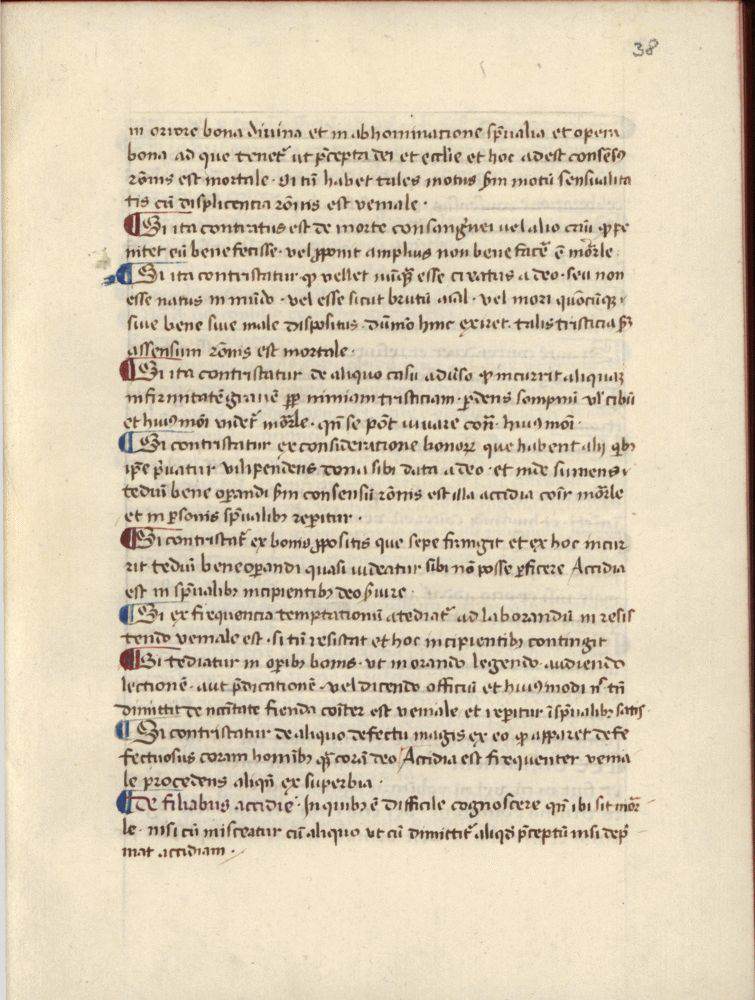 38
in orrore bona divina et in abhominatione sp̄ualia et opera
bona ad que tenet᷑ ut p̄cepta dei et ecclie et hoc adest consēsꝯ
rōnis est mortale · Si tn̄ habet tales motus scḋm motū sensualita
tis cū displicentia rōnis est veniale ·
¶ Si ita contratus est de morte consanguinei vel alio casu ꝙ pe
nitet eū bene fecisse · vel ꝓponit amplius non bene facē ē mōrle
¶ Si ita contristatur ꝙ vellet nūqȝ esse creatus a deo · seu non
esse natus in mūdo · vel esse sicut brutū aīal · vel mori quocūqȝ
sive bene sive male dispositus · dūmō hinc exiret · talis tristicia scḋm
assensum rōnis est mortale ·
¶ Si ita contristatur de aliquo casu adūso ꝙ incurrit aliquaȝ
infirmitatē gravē ꝓp nimiam tristiciam · ꝑdens sompnū vl' cibū
et huiꝯmōi videt᷑ mōrle · qn̄ se pōt iuvare con̄ · huiꝯmōi ·
¶ Si contristatur ex consideratione bonoꝝ que habent alij qibȝ
ip̄e p̄vatur vilipendens dona sibi data a deo · et inde sumens
tediū bene oꝑandi scḋm consensū rōnis est illa accidia cōiṫ mōrle
et in ꝑsonis sp̄ualibȝ reꝑitur ·
¶ Si contristat᷑ ex bonis ꝓpositis que sepe frangit et ex hoc incur
rit tediū bene oꝑandi quasi videatur sibi nō posse ꝑficere Accidia
est in sp̄ualibȝ incipientibȝ deo s̄vire ·
¶ Si ex frequencia temptationū atediat᷑ ad laborandū in resis
tendo veniale est · si tn̄ resistat et hoc incipientibȝ contingit
¶ Si tediatur in oꝑibȝ bonis · ut in orando legendo · audiendo
lectionē · aut p̄dicationē · vel dicendo officiū et huiꝯmodi nō tn̄
dimittit de nc̄citate fienda cōiter est veniale et reꝑitur ī sp̄ualibȝ satis
¶ Si contristatur de aliquo defectu magis ex eo ꝙ apparet defe
fectuosus coram hominibȝ qȝ corā deo Accidia est frequenter venia
le procedens aliqn̄ ex superbia ·
¶ De filiabus accidie · In quibȝ ē difficile cognoscere qn̄ ibi sit mōr
le · nisi cū misceatur cū aliquo ut cū dimittit᷑ aliqḋ p̄ceptū nisi dep̄
mat accidiam ·